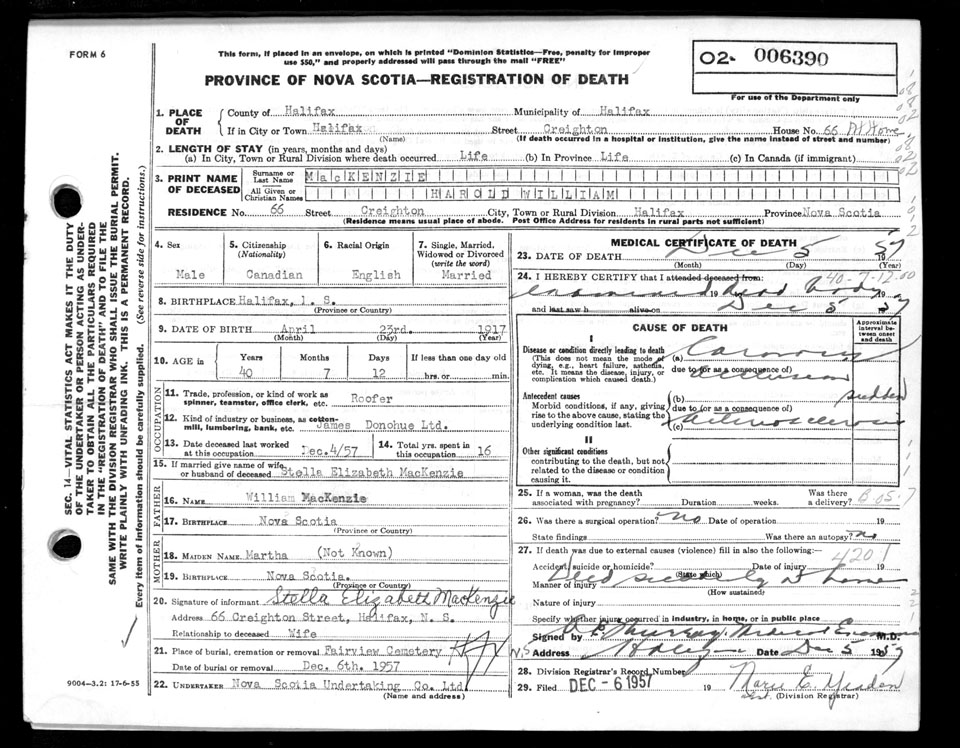 FORM 6
This form, if placed in an envelope, on which is printed "Dominion Statistics—Free, penalty for improper
use $50," and properly addressed will pass through the mail "FREE"
PROVINCE OF NOVA SCOTIA—REGISTRATION OF DEATH
02- 006390
For use of the Department only
1. PLACE OF DEATH
County of Halifax Municipality of Halifax
If in City or Town Halifax Street Creighton House No. 66 At Home
(Name) (If death occurred in a hospital or institution, give the name instead of street and number)
2. LENGTH OF STAY (in years, months and days)
(a) In City, Town or Rural Division where death occurred Life (b) In Province Life (c) In Canada (if immigrant)
3. PRINT NAME OF DECEASED
Surname or Last Name MacKENZIE
All Given or Christian Names HAROLD WILLIAM
RESIDENCE No. 66 Street Creighton City, Town or Rural Division Halifax Province Nova Scotia
(Residence means usual place of abode. Post Office Address for residents in rural parts not sufficient)
4. Sex Male
5. Citizenship (Nationality) Canadian
6. Racial Origin English
7. Single, Married, Widowed or Divorced (write the word) Married
8. BIRTHPLACE Halifax, N. S.
(Province or Country)
9. DATE OF BIRTH April 23rd. 1917
(Month) (Day) (Year)
10. AGE in Years 40 Months 7 Days 12 If less than one day old hrs. or min.
OCCUPATION
11. Trade, profession, or kind of work as spinner, teamster, office clerk, etc. Roofer
12. Kind of industry or business, as cotton-mill, lumbering, bank, etc. James Donohue Ltd.
13. Date deceased last worked at this occupation Dec.4/57
14. Total yrs. spent in this occupation 16
15. If married give name of wife or husband of deceased Stella Elizabeth MacKenzie
FATHER
16. NAME William MacKenzie
17. BIRTHPLACE Nova Scotia
(Province or Country)
MOTHER
18. MAIDEN NAME Martha (Not Known)
19. BIRTHPLACE Nova Scotia.
(Province or Country)
20. Signature of informant Stella Elizabeth MacKenzie
Address 66 Creighton Street, Halifax, N. S.
Relationship to deceased Wife
21. Place of burial, cremation or removal Fairview Cemetery Hfx N.S
Date of burial or removal Dec. 6th. 1957
22. UNDERTAKER Nova Scotia Undertaking Co. Ltd.
(Name and address)
MEDICAL CERTIFICATE OF DEATH
23. DATE OF DEATH Dec 5 57
(Month) (Day) (Year)
40-7-12-00
24. I HEREBY CERTIFY that I attended deceased from:
examined 19 dead body 19
and last saw h alive on Dec 5 1957
CAUSE OF DEATH
Approximate interval between onset and death
I
Disease or condition directly leading to death
(This does not mean the mode of dying, e.g., heart failure, asthenia, etc. It means the disease, injury, or complication which caused death.)
(a) Coronary
due to (or as a consequence of)
occlusion
sudden
Antecedent causes
Morbid conditions, if any, giving rise to the above cause, stating the underlying condition last.
(b)
due to (or as a consequence of)
(c) arteriosclerosis
II
Other significant conditions
contributing to the death, but not related to the disease or condition causing it.
25. If a woman, was the death associated with pregnancy? Duration weeks. Was there a delivery?
26. Was there a surgical operation? no Date of operation 19
State findings Was there an autopsy? no
27. If death was due to external causes (violence) fill in also the following:—
4201
Accident, suicide or homicide? (State which) Date of injury 19
Died suddenly at home
Manner of injury
(How sustained)
Nature of injury
Specify whether injury occurred in industry, in home, or in public place
Signed by Murray, Medical Examiner M.D.
Address Halifax Date Dec 5 1957
28. Division Registrar's Record Number
29. Filed DEC - 6 1957 19
(Division Registrar)
SEC. 14—VITAL STATISTICS ACT MAKES IT THE DUTY
OF THE UNDERTAKER OR PERSON ACTING AS UNDER-
TAKER TO OBTAIN ALL THE PARTICULARS REQUIRED
IN THE "REGISTRATION OF DEATH" AND TO FILE THE
SAME WITH THE DIVISION REGISTRAR WHO SHALL ISSUE THE BURIAL PERMIT.
WRITE PLAINLY WITH UNFADING INK. THIS IS A PERMANENT RECORD.
Every item of information should be carefully supplied. (See reverse side for instructions.)
9004-3.2: 17-6-55